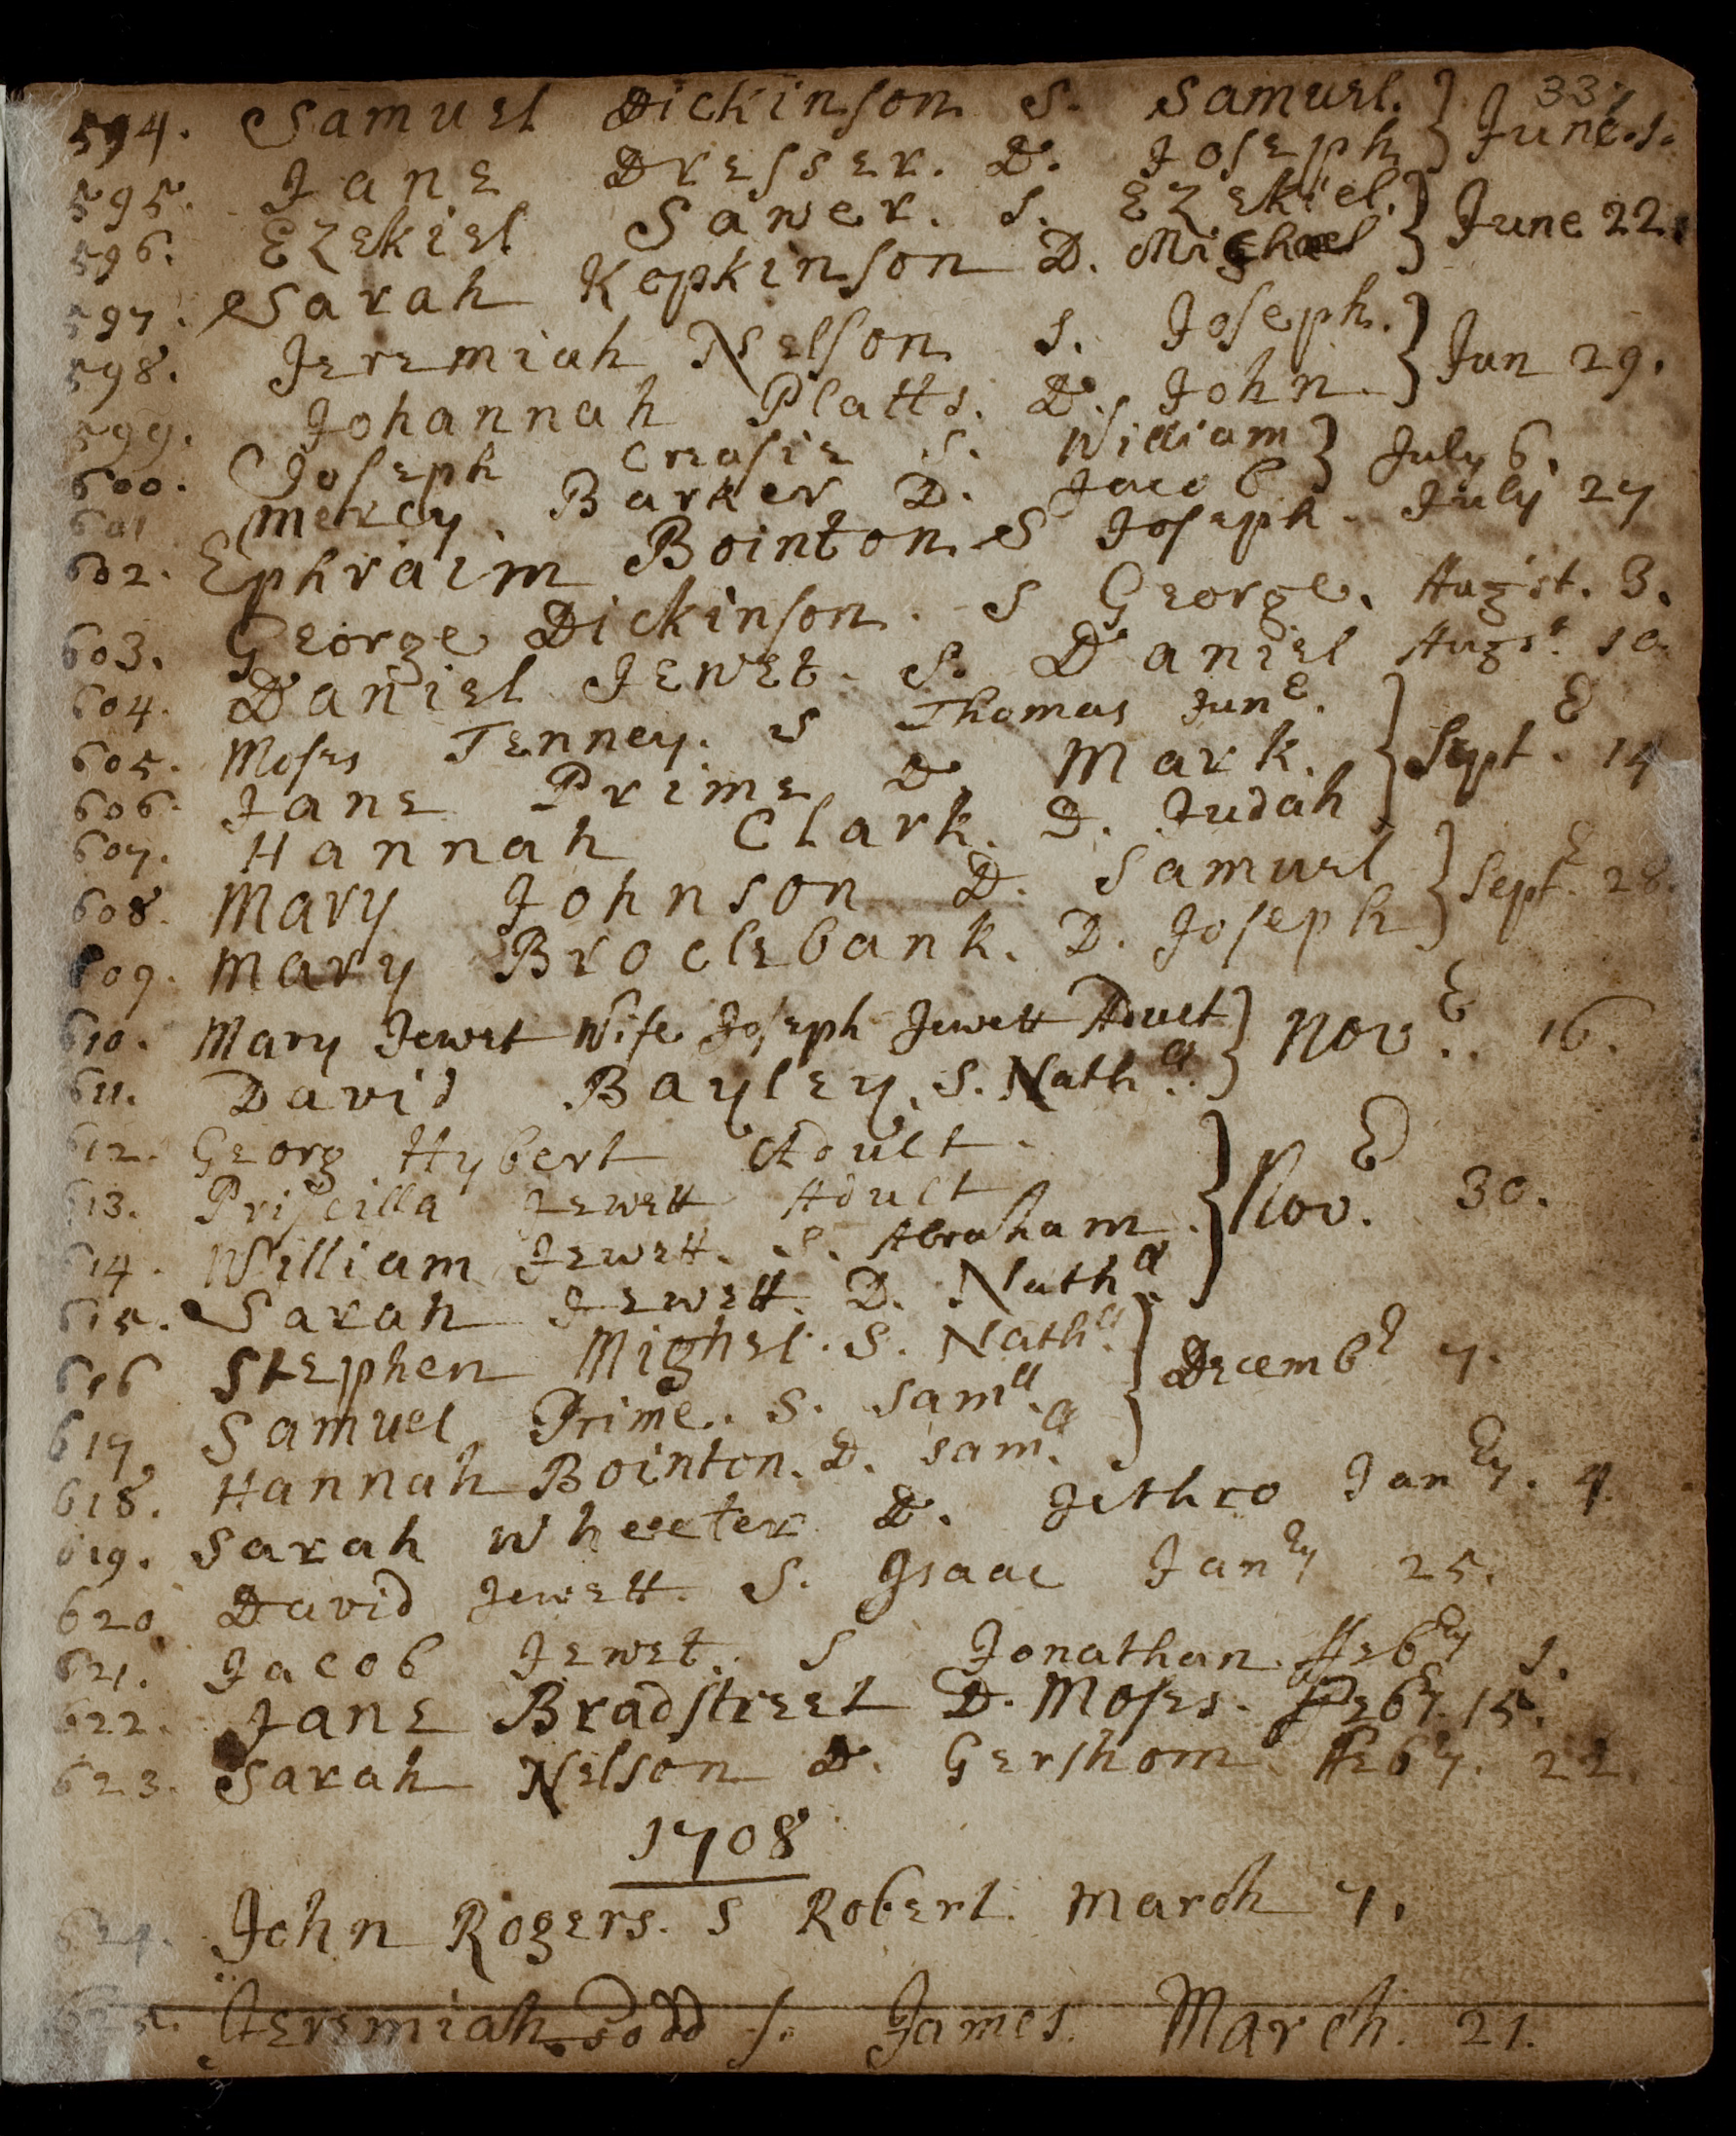 337
594. Samuel Dickinson S. Samuel. } June. 1.
595. Jane Dresser. D. Joseph
596. Ezekiel Sawer. S. Ezekiel. } June 22.
597. Sarah Hopkinson D. Michael
598. Jeremiah Nelson S. Joseph. } Jun 29.
599. Johannah Platts. D. John.
600. Joseph Creasie S. William } July 6.
601 Mercy Barker D. Jacob
602. Ephraim Bointon S Joseph. July 27
603. George Dickinson. S George. Augst. 3.
604. Daniel Jewet. S. Daniel Augst. 10.
605. Moses Tenney. S Thomas Junr.
606. Jane Prime D Mark. } Septr. 14
607. Hannah Clark. D. Judah
608. Mary Johnson D. Samuel } Septr. 28.
609. Mary Brocklebank. D. Joseph
610. Mary Jewet Wife Joseph Jewett Adult } Novr. 16.
611. David Bayley. S. Nathll.
612. Georg Hybert Adult.
613. Priscilla Jewett Adult } Novr. 30.
614. William Jewett. S. Abraham
615. Sarah Jewett. D. Nathll.
616 Stephen Mighel. S. Nathll. } Decembr 7.
617 Samuel Prime. S. Samll.
618. Hannah Bointon. D. Samll.
619. Sarah Wheeler D. Jethro Janry. 4.
620 David Jewett. S. Isaac Janry 25.
621. Jacob Jewet. S Jonathan. Febry 1.
622. Jane Bradstreet D. Moses. Febry. 15.
623. Sarah Nelson D. Gershom Febry. 22.
1708
624. John Rogers. S Robert. March 7.
625. Jeremiah Todd S. James. March. 21.